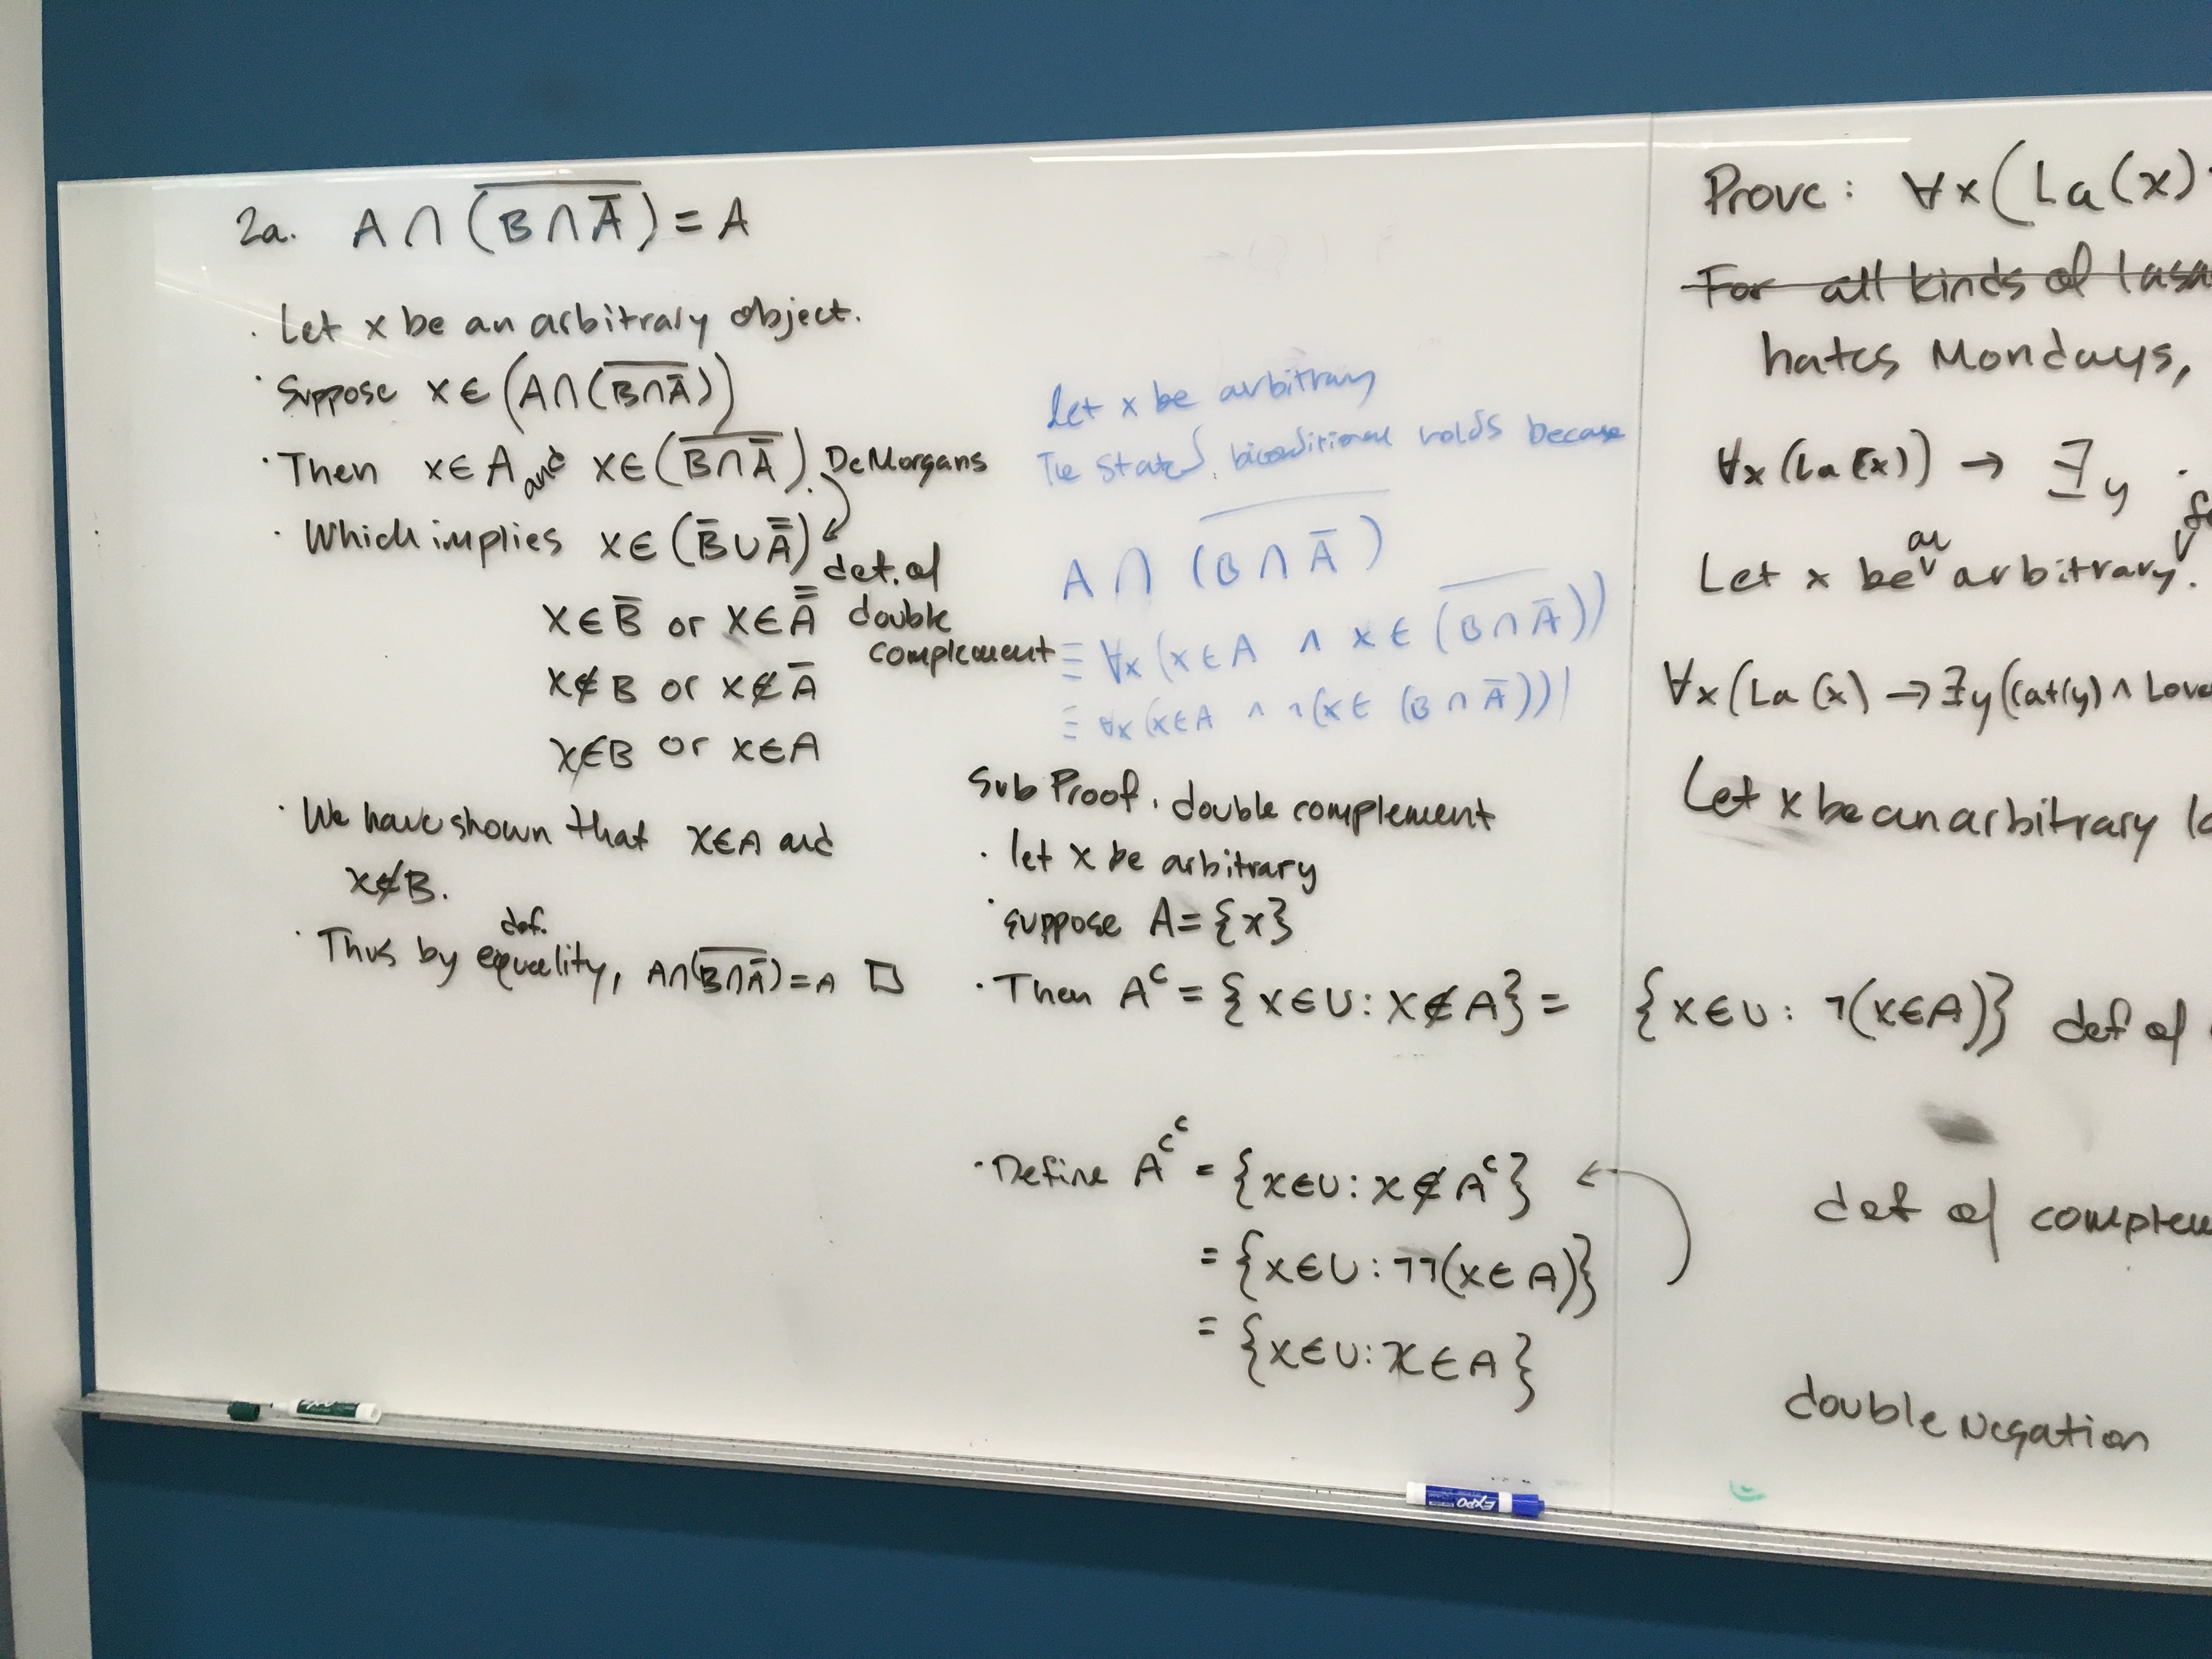 2a. A ∩ (B ∩ A̅)̅ = A
· Let x be an arbitrary object.
· Suppose x ∈ (A ∩ (B̅∩̅A̅̅))
· Then x ∈ A and x ∈ (B̅∩̅A̅̅). DeMorgans
· Which implies x ∈ (B̅ ∪ A̿)
def. of
x ∈ B̅ or x ∈ A̿ double
complement
x ∉ B or x ∉ A̅
x ∉ B or x ∈ A
· We have shown that x ∈ A and
x ∉ B.
def.
· Thus by equality, A∩(B̅∩̅A̅̅) = A □
Let x be arbitrary
The stated biconditional holds because
A ∩ (B̅∩̅A̅̅)
≡ ∀x (x ∈ A ∧ x ∈ (B̅∩̅A̅̅))
≡ ∀x (x ∈ A ∧ ¬(x ∈ (B ∩ A̅)))
Sub Proof. double complement
· let x be arbitrary
· suppose A = {x}
· Then Aᶜ = {x ∈ U : x ∉ A} = {x ∈ U : ¬(x ∈ A)} def of
· Define Aᶜᶜ = {x ∈ U : x ∉ Aᶜ}
def of complem
= {x ∈ U : ¬¬(x ∈ A)}
= {x ∈ U : x ∈ A}
double negation
Prove : ∀x (La(x)
For all kinds of lasa
hates Mondays,
∀x (La(x)) → ∃y
an
Let x be arbitrary.
∀x (La(x) → ∃y (Cat(y) ∧ Love
Let x be an arbitrary la
EXPO